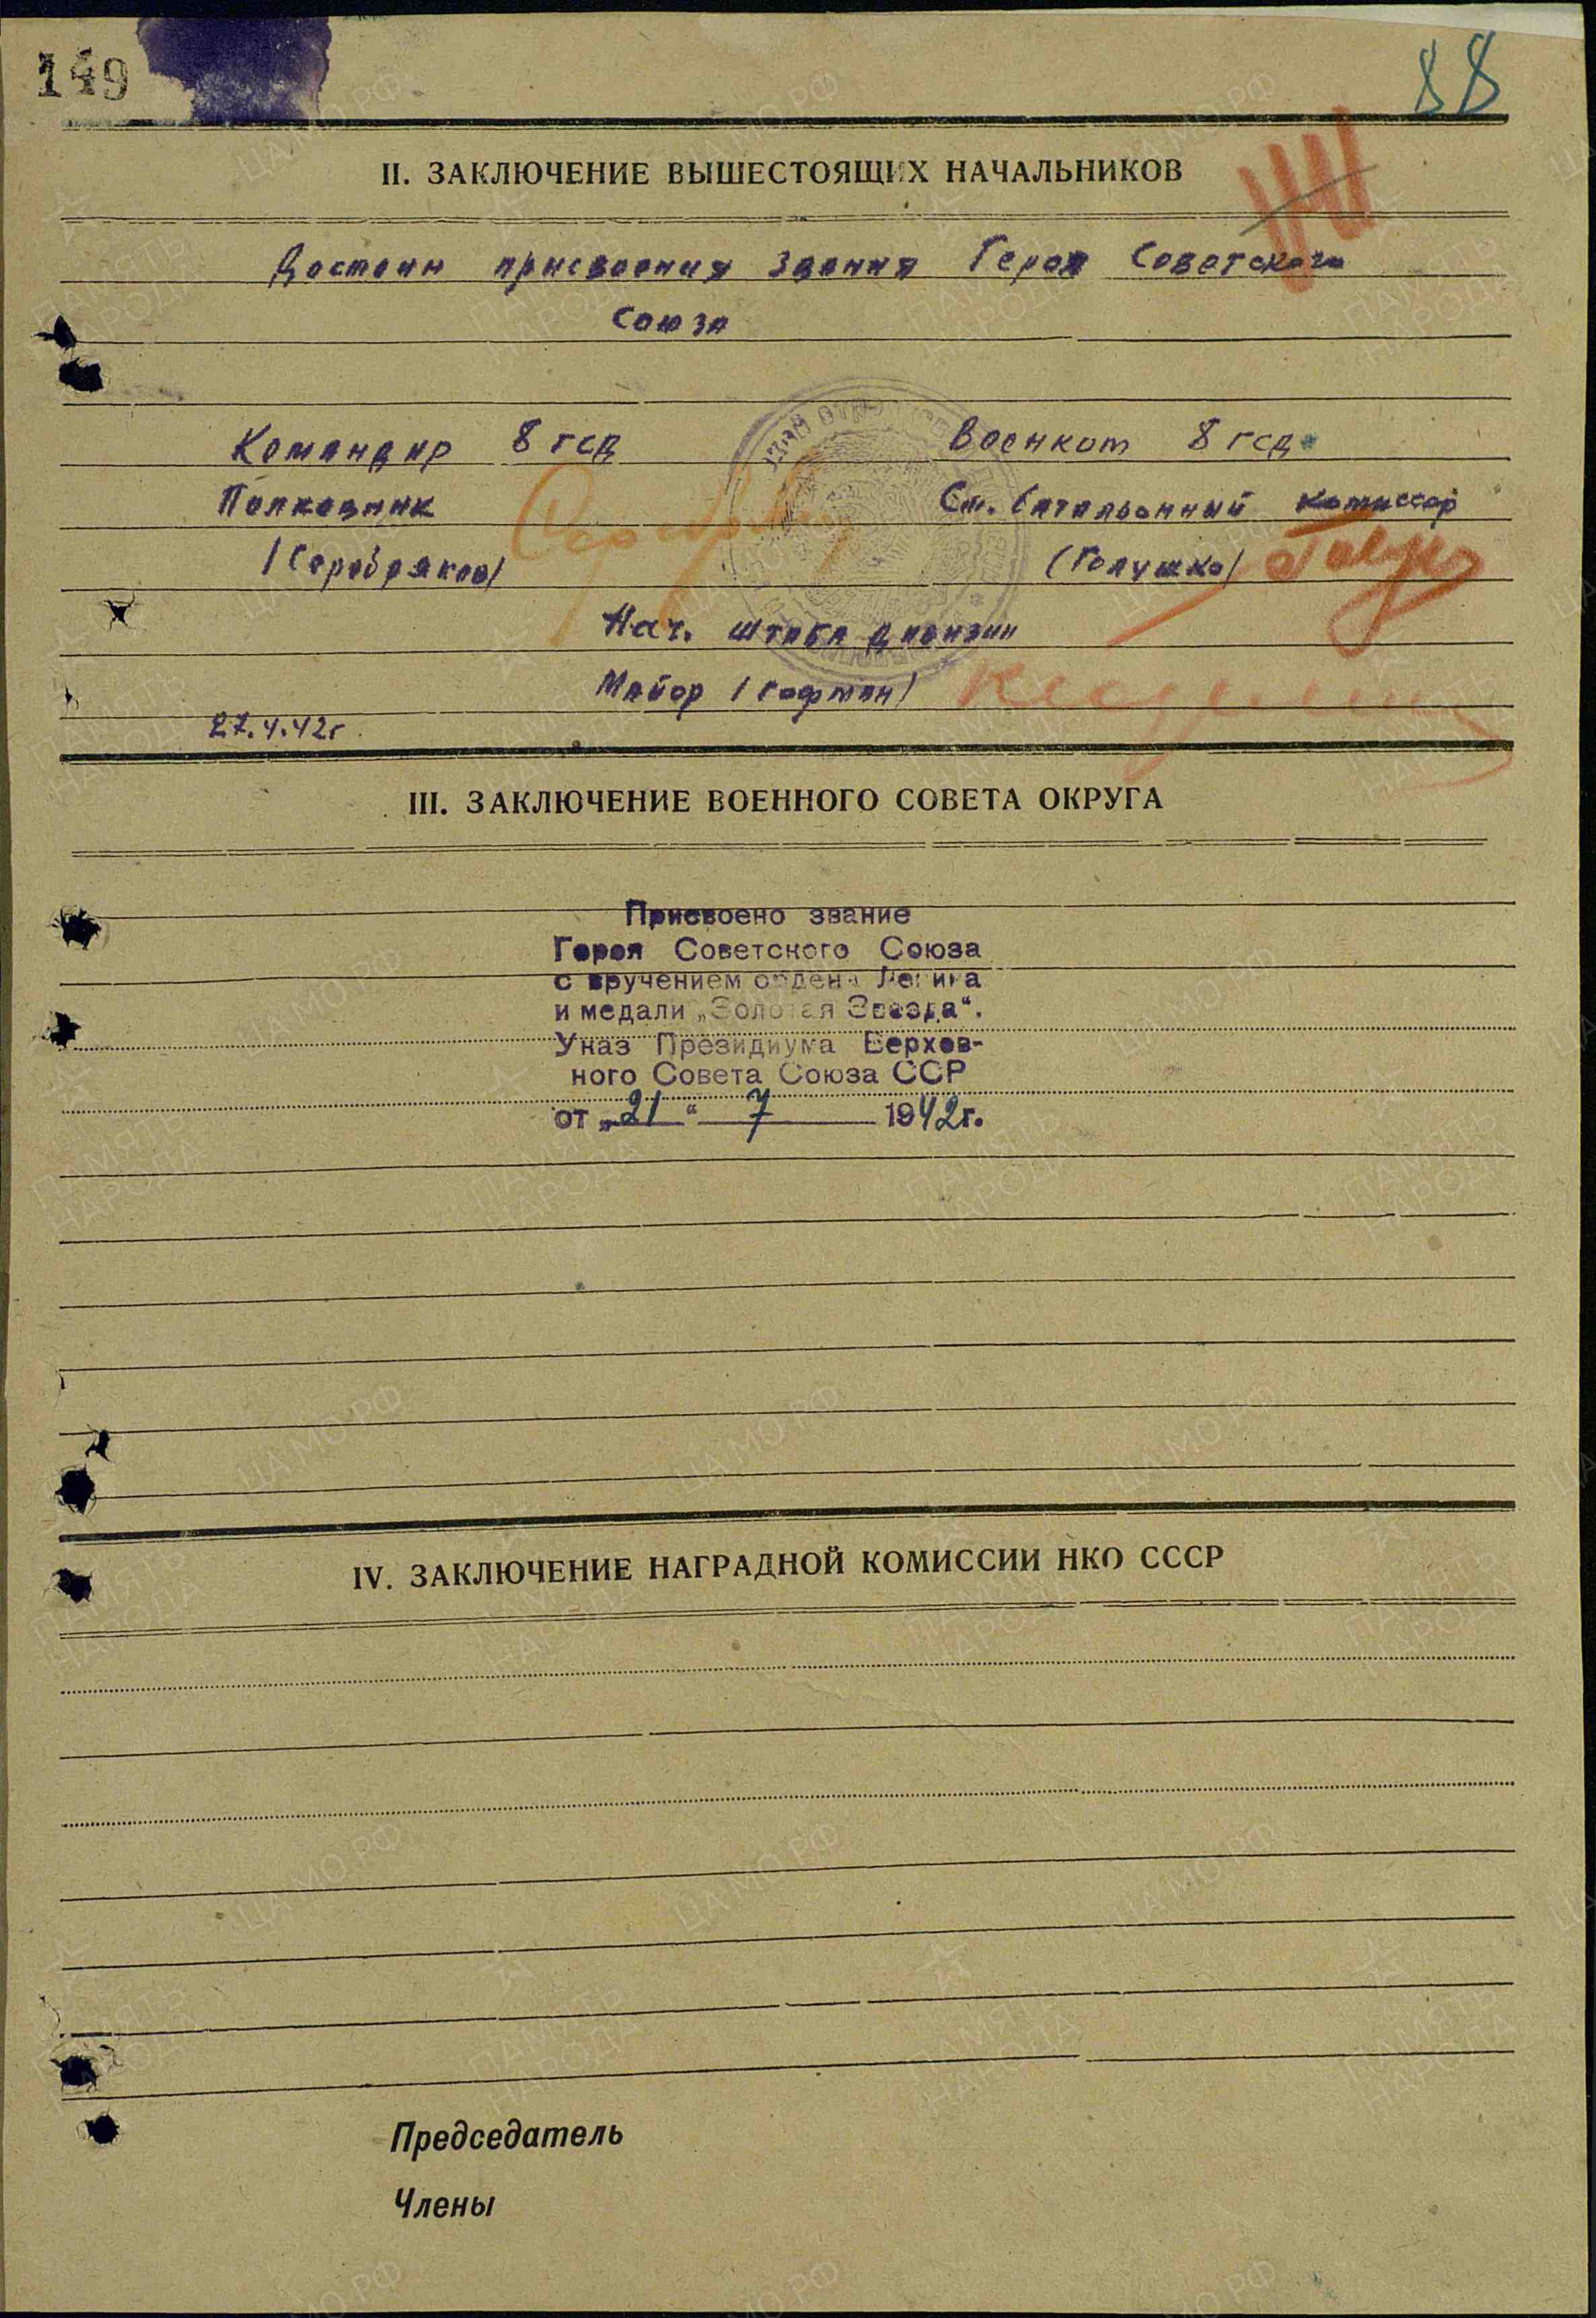 149
88
II. ЗАКЛЮЧЕНИЕ ВЫШЕСТОЯЩИХ НАЧАЛЬНИКОВ
Достоин присвоения звания Героя Советского
Союза
Командир 8 гсд Военком 8 гсд
Полковник Ст. батальонный комиссар
/Серебряков/ (Галушко)
Нач. штаба дивизии
Майор /Гофман/
27.4.42г
III. ЗАКЛЮЧЕНИЕ ВОЕННОГО СОВЕТА ОКРУГА
Присвоено звание
Героя Советского Союза
с вручением ордена Ленина
и медали „Золотая Звезда“.
Указ Президиума Верхов-
ного Совета Союза ССР
от „21“ 7 1942г.
IV. ЗАКЛЮЧЕНИЕ НАГРАДНОЙ КОМИССИИ НКО СССР
Председатель
Члены